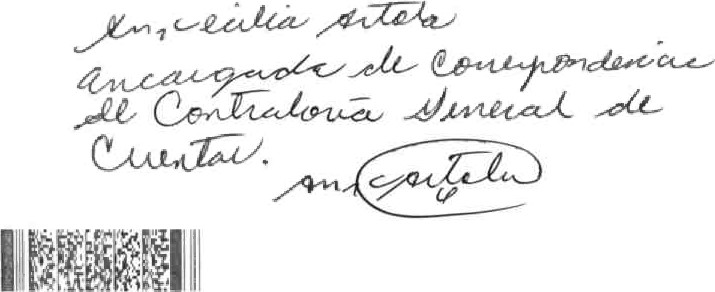 Cecilia Artola
encargada de Correspondencia
de Contraloría General de
Cuentas.
Artola